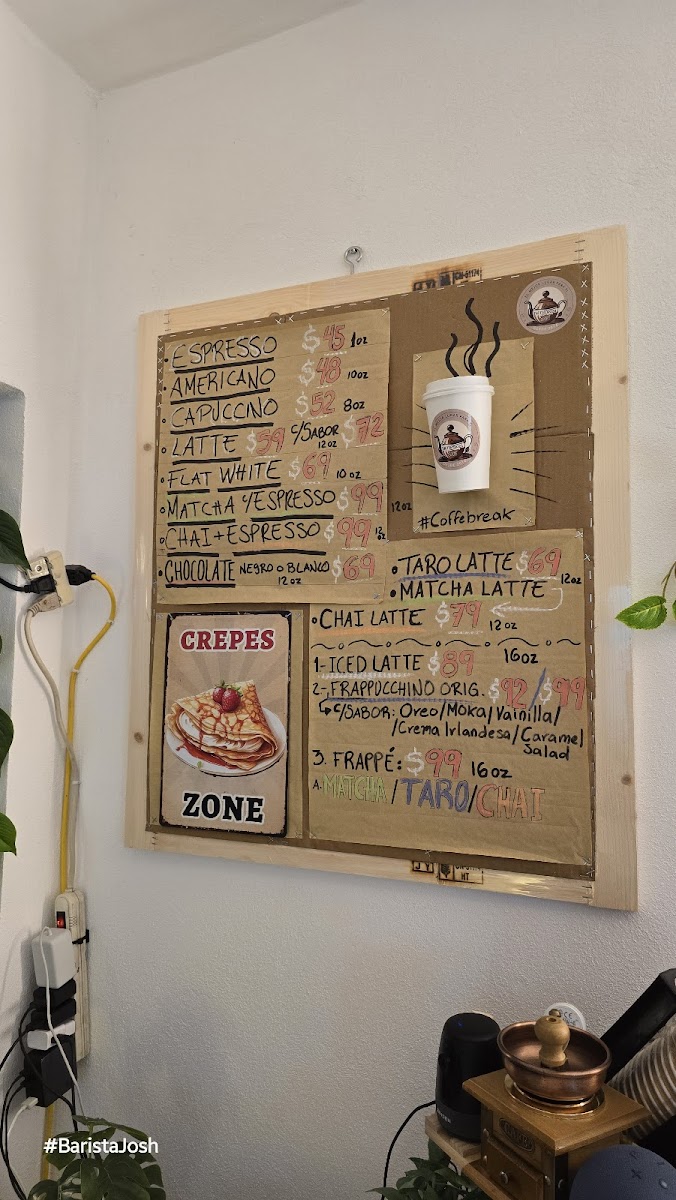 ESPRESSO $45 1oz
AMERICANO $48 10oz
CAPUCCINO $52 8oz
LATTE $59 c/SABOR $72 12oz
FLAT WHITE $69 10oz
MATCHA c/ESPRESSO $99 12oz
CHAI+ESPRESSO $99 12oz
CHOCOLATE NEGRO o BLANCO $69 12oz
#Coffebreak
TARO LATTE $69 12oz
MATCHA LATTE
CHAI LATTE $79 12oz
1-ICED LATTE $89 16oz
2-FRAPPUCCHINO ORIG. $92/$99
c/SABOR: Oreo/Moka/Vainilla/
/Crema Irlandesa/Caramel
Salad
3. FRAPPÉ: $99 16oz
A. MATCHA/TARO/CHAI
CREPES
ZONE
#BaristaJosh